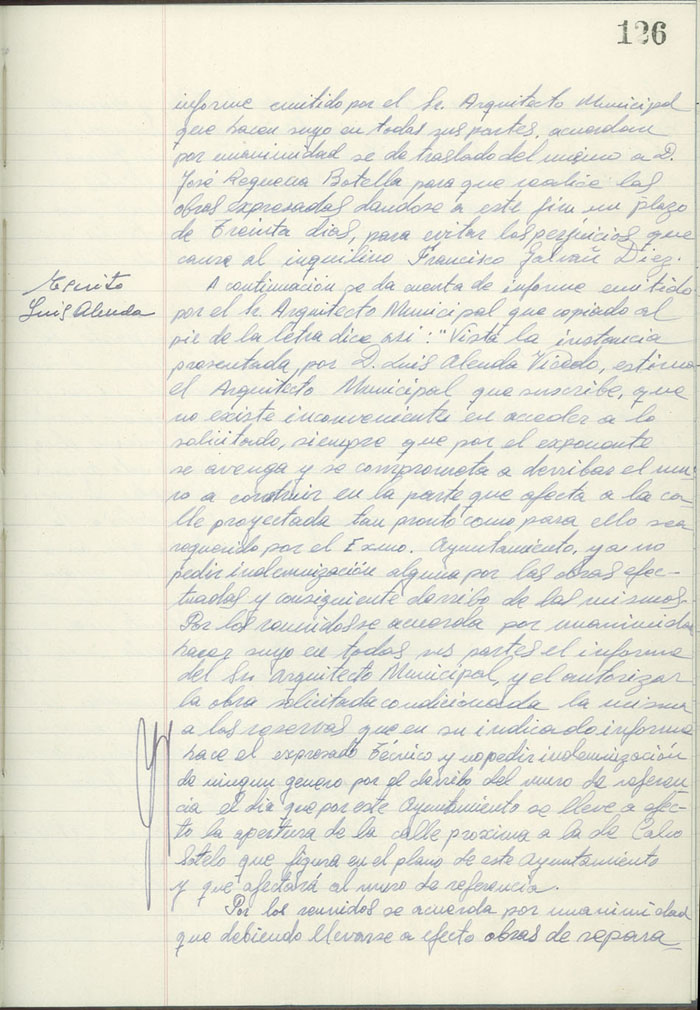 126
informe emitido por el Sr. Arquitecto Municipal
que hacen suyo en todas sus partes, acuerdan
por unanimidad se de traslado del mismo a D.
José Requena Botella para que realice las
obras expresadas dandose a este fin un plazo
de Treinta dias, para evitar los perjuicios que
causa al inquilino Francisco Galvañ Díez.
Escrito
Luis Alenda
A continuación se da cuenta de informe emitido
por el Sr. Arquitecto Municipal que copiado al
pie de la letra dice asi: "Vista la instancia
presentada, por D. Luis Alenda Vicedo, estima
el Arquitecto Municipal que suscribe, que
no existe inconveniente en acceder a lo
solicitado, siempre que por el exponente
se avenga y se comprometa a derribar el mu-
ro a construir en la parte que afecta a la ca-
lle proyectada tan pronto como para ello sea
requerido por el Exmo. Ayuntamiento, y a no
pedir indemnización alguna por las obras efec-
tuadas y consiguiente derribo de las mismas.-
Por los reunidos se acuerda por unanimidad
hacer suyo en todas sus partes el informe
del Sr. Arquitecto Municipal, y el autorizar
la obra solicitada condicionada la misma
a las reservas que en su indicado informe
hace el expresado Técnico y no pedir indemnización
de ningun genero por el derribo del muro de referen
cia el dia que por este Ayuntamiento se lleve a efec-
to la apertura de la calle proxima a la de Calvo
Sotelo que figura en el plano de este Ayuntamiento
y que afectará al muro de referencia.
Por los reunidos se acuerda por unanimidad
que debiendo llevarse a efecto obras de repara-